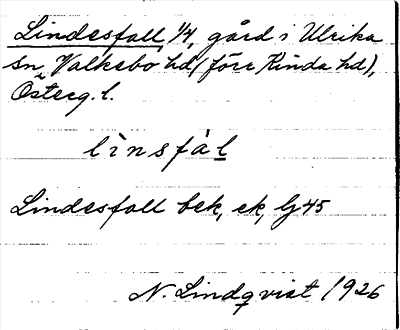 Lindesfall, 1/4, gård i Ulrika
sn, Valkebo hd (förr Kinda hd),
Österg. l.
lìnsfàl
Lindesfall bek, ek, Gj 45
N. Lindqvist 1926